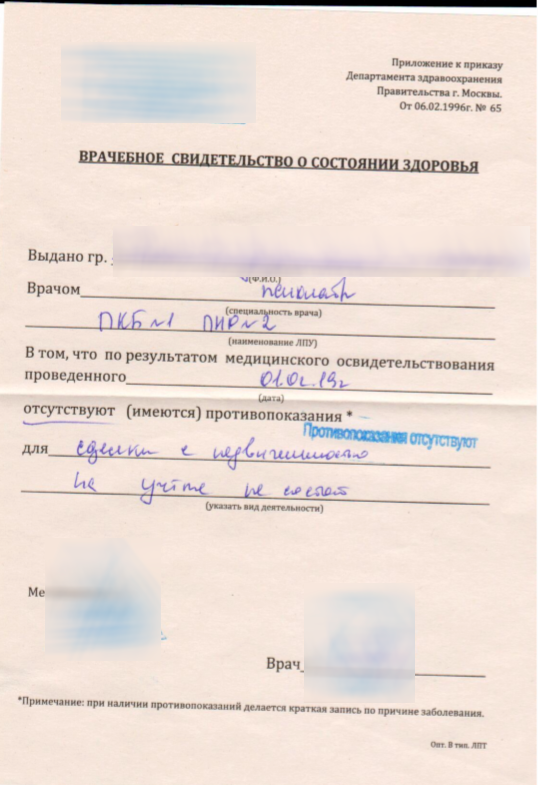 Приложение к приказу
Департамента здравоохранения
Правительства г. Москвы.
От 06.02.1996г. № 65
ВРАЧЕБНОЕ СВИДЕТЕЛЬСТВО О СОСТОЯНИИ ЗДОРОВЬЯ
Выдано гр.
(Ф.И.О.)
Врачом психиатр
(специальность врача)
ПКБ №1 №2
(наименование ЛПУ)
В том, что по результатом медицинского освидетельствования
проведенного
(дата)
отсутствуют (имеются) противопоказания *
Противопоказания отсутствуют
для сделки с недвижимостью
на учёте не состоит
(указать вид деятельности)
Ме
Врач
*Примечание: при наличии противопоказаний делается краткая запись по причине заболевания.
Опт. В тип. ЛПТ